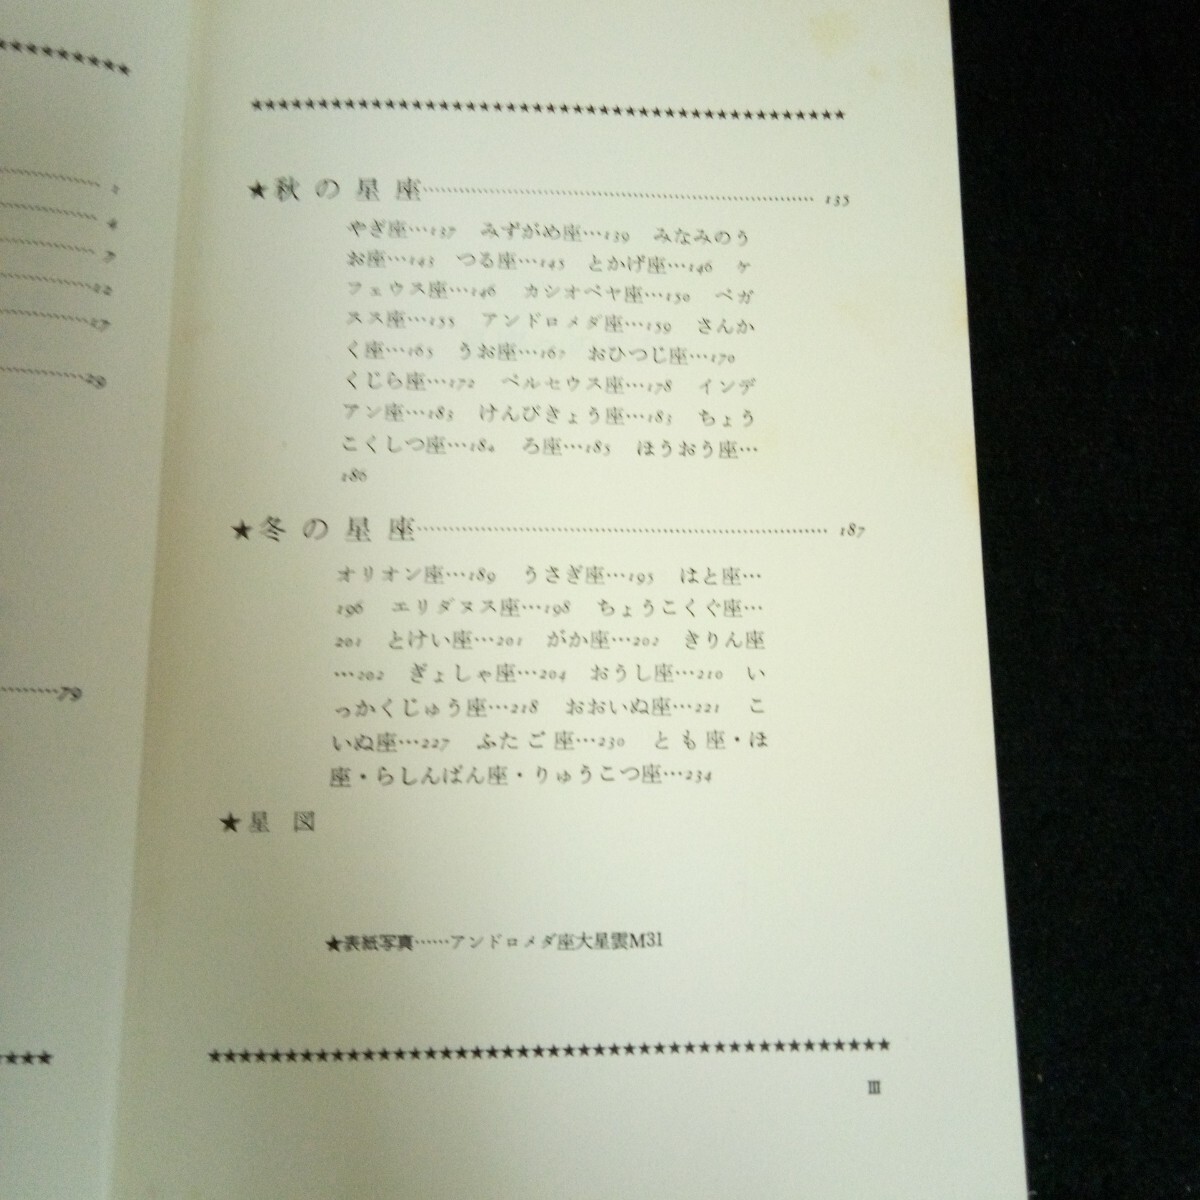 1
4
7
12
17
29
79
★秋の星座…………………………135
やぎ座…137　みずがめ座…139　みなみのう
お座…143　つる座…145　とかげ座…146　ケ
フェウス座…146　カシオペヤ座…150　ペガ
スス座…155　アンドロメダ座…159　さんか
く座…165　うお座…167　おひつじ座…170
くじら座…172　ペルセウス座…178　インデ
アン座…183　けんびきょう座…183　ちょう
こくしつ座…184　ろ座…185　ほうおう座…
186
★冬の星座…………………………187
オリオン座…189　うさぎ座…195　はと座…
196　エリダヌス座…198　ちょうこくぐ座…
201　とけい座…201　がか座…202　きりん座
…202　ぎょしゃ座…204　おうし座…210　い
っかくじゅう座…218　おおいぬ座…221　こ
いぬ座…227　ふたご座…230　とも座・ほ
座・らしんばん座・りゅうこつ座…234
★星図
★表紙写真……アンドロメダ座大星雲M31
III